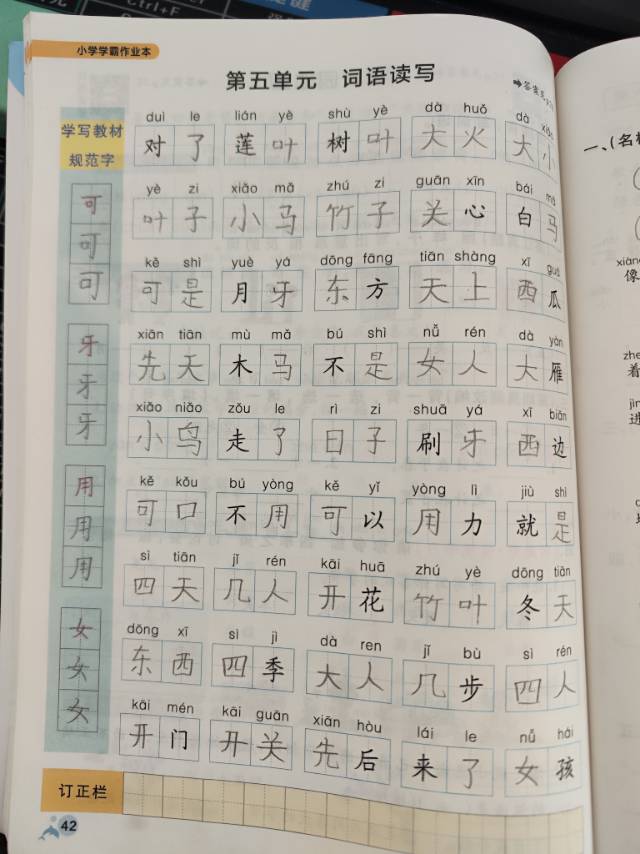 Ctrl+F
小学学霸作业本
第五单元 词语读写
学写教材
规范字
可
可
可
牙
牙
牙
用
用
用
女
女
女
duì le lián yè shù yè dà huǒ dà
对了 莲叶 树叶 大火 大小
yè zi xiǎo mǎ zhú zi guān xīn bái mǎ
叶子 小马 竹子 关心 白马
kě shì yuè yá dōng fāng tiān shàng xī guā
可是 月牙 东方 天上 西瓜
xiān tiān mù mǎ bú shì nǚ rén dà yàn
先天 木马 不是 女人 大雁
xiǎo niǎo zǒu le rì zi shuā yá xī biān
小鸟 走了 日子 刷牙 西边
kě kǒu bú yòng kě yǐ yòng lì jiù shì
可口 不用 可以 用力 就是
sì tiān jǐ rén kāi huā zhú yè dōng tiān
四天 几人 开花 竹叶 冬天
dōng xī sì jì dà ren jǐ bù sì rén
东西 四季 大人 几步 四人
kāi mén kāi guān xiān hòu lái le nǚ hái
开门 开关 先后 来了 女孩
订正栏
42
一、(名
像
zhe
着